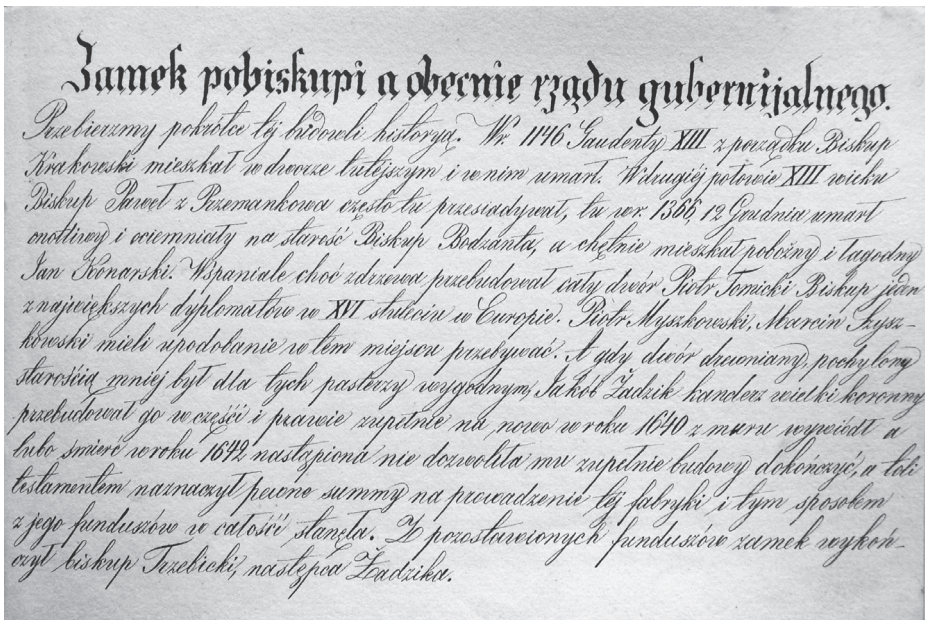 Zamek pobiskupi a obecnie rządu gubernijalnego.
Przebierzmy pokrótce téj budowli historyą. W r. 1146 Gaudenty XIII z porządku Biskup
Krakowski mieszkał w dworze tutejszym i w nim umarł. W drugiéj połowie XIII wieku
Biskup Paweł z Przemankowa często tu przesiadywał, tu w r. 1366, 12 Grudnia umarł
cnotliwy i ociemniały na starość Biskup Bodzanta, a chętnie mieszkał pobożny i łagodny
Jan Konarski. Wspaniale choć z drzewa przebudował cały dwór Piotr Tomicki Biskup jeden
z największych dyplomatów w XVI stuleciu w Europie. Piotr Myszkowski, Marcin Szysz-
kowski mieli upodobanie w tém miejscu przebywać. A gdy dwór drewniany, pochylony
starością mniéj był dla tych pasterzy wygodnym, Jakób Zadzik kanclerz wielki koronny
przebudował go w części i prawie zupełnie na nowo w roku 1640 z muru wywiódł a
lubo śmierć w roku 1642 nastąpiona nie dozwoliła mu zupełnie budowy dokończyć, a toli
testamentem naznaczył pewne summy na prowadzenie téj fabryki i tym sposobem
z jego funduszów w całości stanęła. Z pozostawionych funduszów zamek wykoń-
czył biskup Trzebicki, następca Zadzika.